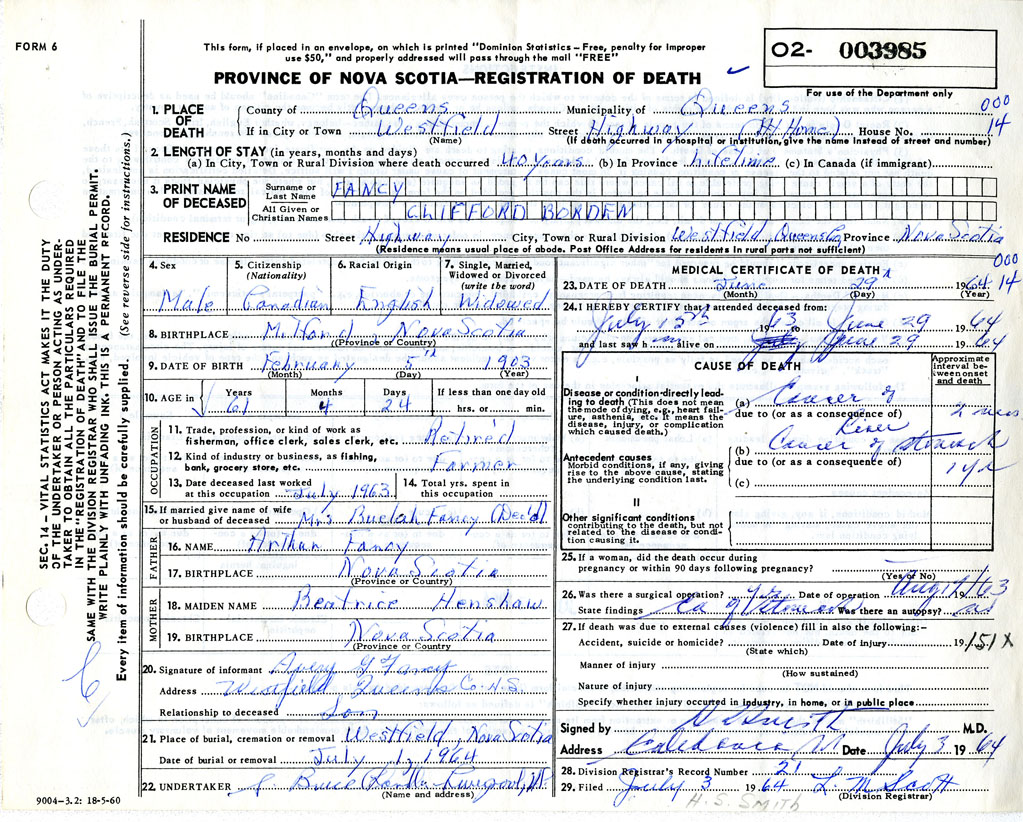 FORM 6
This form, if placed in an envelope, on which is printed "Dominion Statistics – Free, penalty for improper
use $50," and properly addressed will pass through the mail "FREE"
PROVINCE OF NOVA SCOTIA—REGISTRATION OF DEATH
O2- 003985
For use of the Department only
1. PLACE OF DEATH
County of Queens Municipality of Queens 000
If in City or Town Westfield Street Highway (At Home) House No. 14
(Name) (If death occurred in a hospital or institution, give the name instead of street and number)
2. LENGTH OF STAY (in years, months and days)
(a) In City, Town or Rural Division where death occurred 40 years (b) In Province Lifetime (c) In Canada (if immigrant)
3. PRINT NAME OF DECEASED
Surname or Last Name FANCY
All Given or Christian Names CLIFFORD BORDEN
RESIDENCE No Street Highway City, Town or Rural Division Westfield, Queens Co Province Nova Scotia
(Residence means usual place of abode. Post Office Address for residents in rural parts not sufficient)
4. Sex
Male
5. Citizenship (Nationality)
Canadian
6. Racial Origin
English
7. Single, Married, Widowed or Divorced (write the word)
Widowed
8. BIRTHPLACE Nova Scotia
(Province or Country)
9. DATE OF BIRTH February 5th 1903
(Month) (Day) (Year)
10. AGE in Years 61 Months 4 Days 24 If less than one day old hrs. or min.
OCCUPATION
11. Trade, profession, or kind of work as
fisherman, office clerk, sales clerk, etc. Retired
12. Kind of industry or business, as fishing,
bank, grocery store, etc. Farmer
13. Date deceased last worked at this occupation July 1963
14. Total yrs. spent in this occupation
15. If married give name of wife
or husband of deceased Mrs Buelah Fancy (Dec'd)
FATHER
16. NAME Arthur Fancy
17. BIRTHPLACE Nova Scotia
(Province or Country)
MOTHER
18. MAIDEN NAME Beatrice Henshaw
19. BIRTHPLACE Nova Scotia
(Province or Country)
20. Signature of informant G Fancy
Address Westfield Queens Co. N.S.
Relationship to deceased son
21. Place of burial, cremation or removal Westfield, Nova Scotia
Date of burial or removal July 1, 1964
22. UNDERTAKER Bruce
(Name and address)
9004–3.2: 18-5-60
MEDICAL CERTIFICATE OF DEATH
000
23. DATE OF DEATH June 29 1964 14
(Month) (Day) (Year)
24. I HEREBY CERTIFY that I attended deceased from:
July 15th 1963 to June 29 1964
and last saw him alive on June 29 1964
CAUSE OF DEATH
Approximate interval between onset and death
I
Disease or condition directly leading to death (This does not mean the mode of dying, e.g., heart failure, asthenia, etc. It means the disease, injury, or complication which caused death.)
(a) Cancer of
due to (or as a consequence of) 2 mos
Liver
Antecedent causes
Morbid conditions, if any, giving rise to the above cause, stating the underlying condition last.
(b) Cancer of stomach
due to (or as a consequence of) 1 yr
(c)
II
Other significant conditions
contributing to the death, but not related to the disease or condition causing it.
25. If a woman, did the death occur during
pregnancy or within 90 days following pregnancy?
(Yes or No)
26. Was there a surgical operation? Yes Date of operation Aug 12 1963
State findings Ca of Was there an autopsy?
27. If death was due to external causes (violence) fill in also the following:–
Accident, suicide or homicide? Date of injury 19 151X
(State which)
Manner of injury
(How sustained)
Nature of injury
Specify whether injury occurred in industry, in home, or in public place
Signed by H S Smith M.D.
Address Caledonia Date July 3 1964
28. Division Registrar's Record Number 21
29. Filed July 3 1964 L. M Scott
(Division Registrar)
H. S. SMITH
SEC. 14 – VITAL STATISTICS ACT MAKES IT THE DUTY
OF THE UNDERTAKER OR PERSON ACTING AS UNDER-
TAKER TO OBTAIN ALL THE PARTICULARS REQUIRED
IN THE "REGISTRATION OF DEATH" AND TO FILE THE
SAME WITH THE DIVISION REGISTRAR WHO SHALL ISSUE THE BURIAL PERMIT.
WRITE PLAINLY WITH UNFADING INK. THIS IS A PERMANENT RECORD.
Every item of information should be carefully supplied. (See reverse side for instructions.)